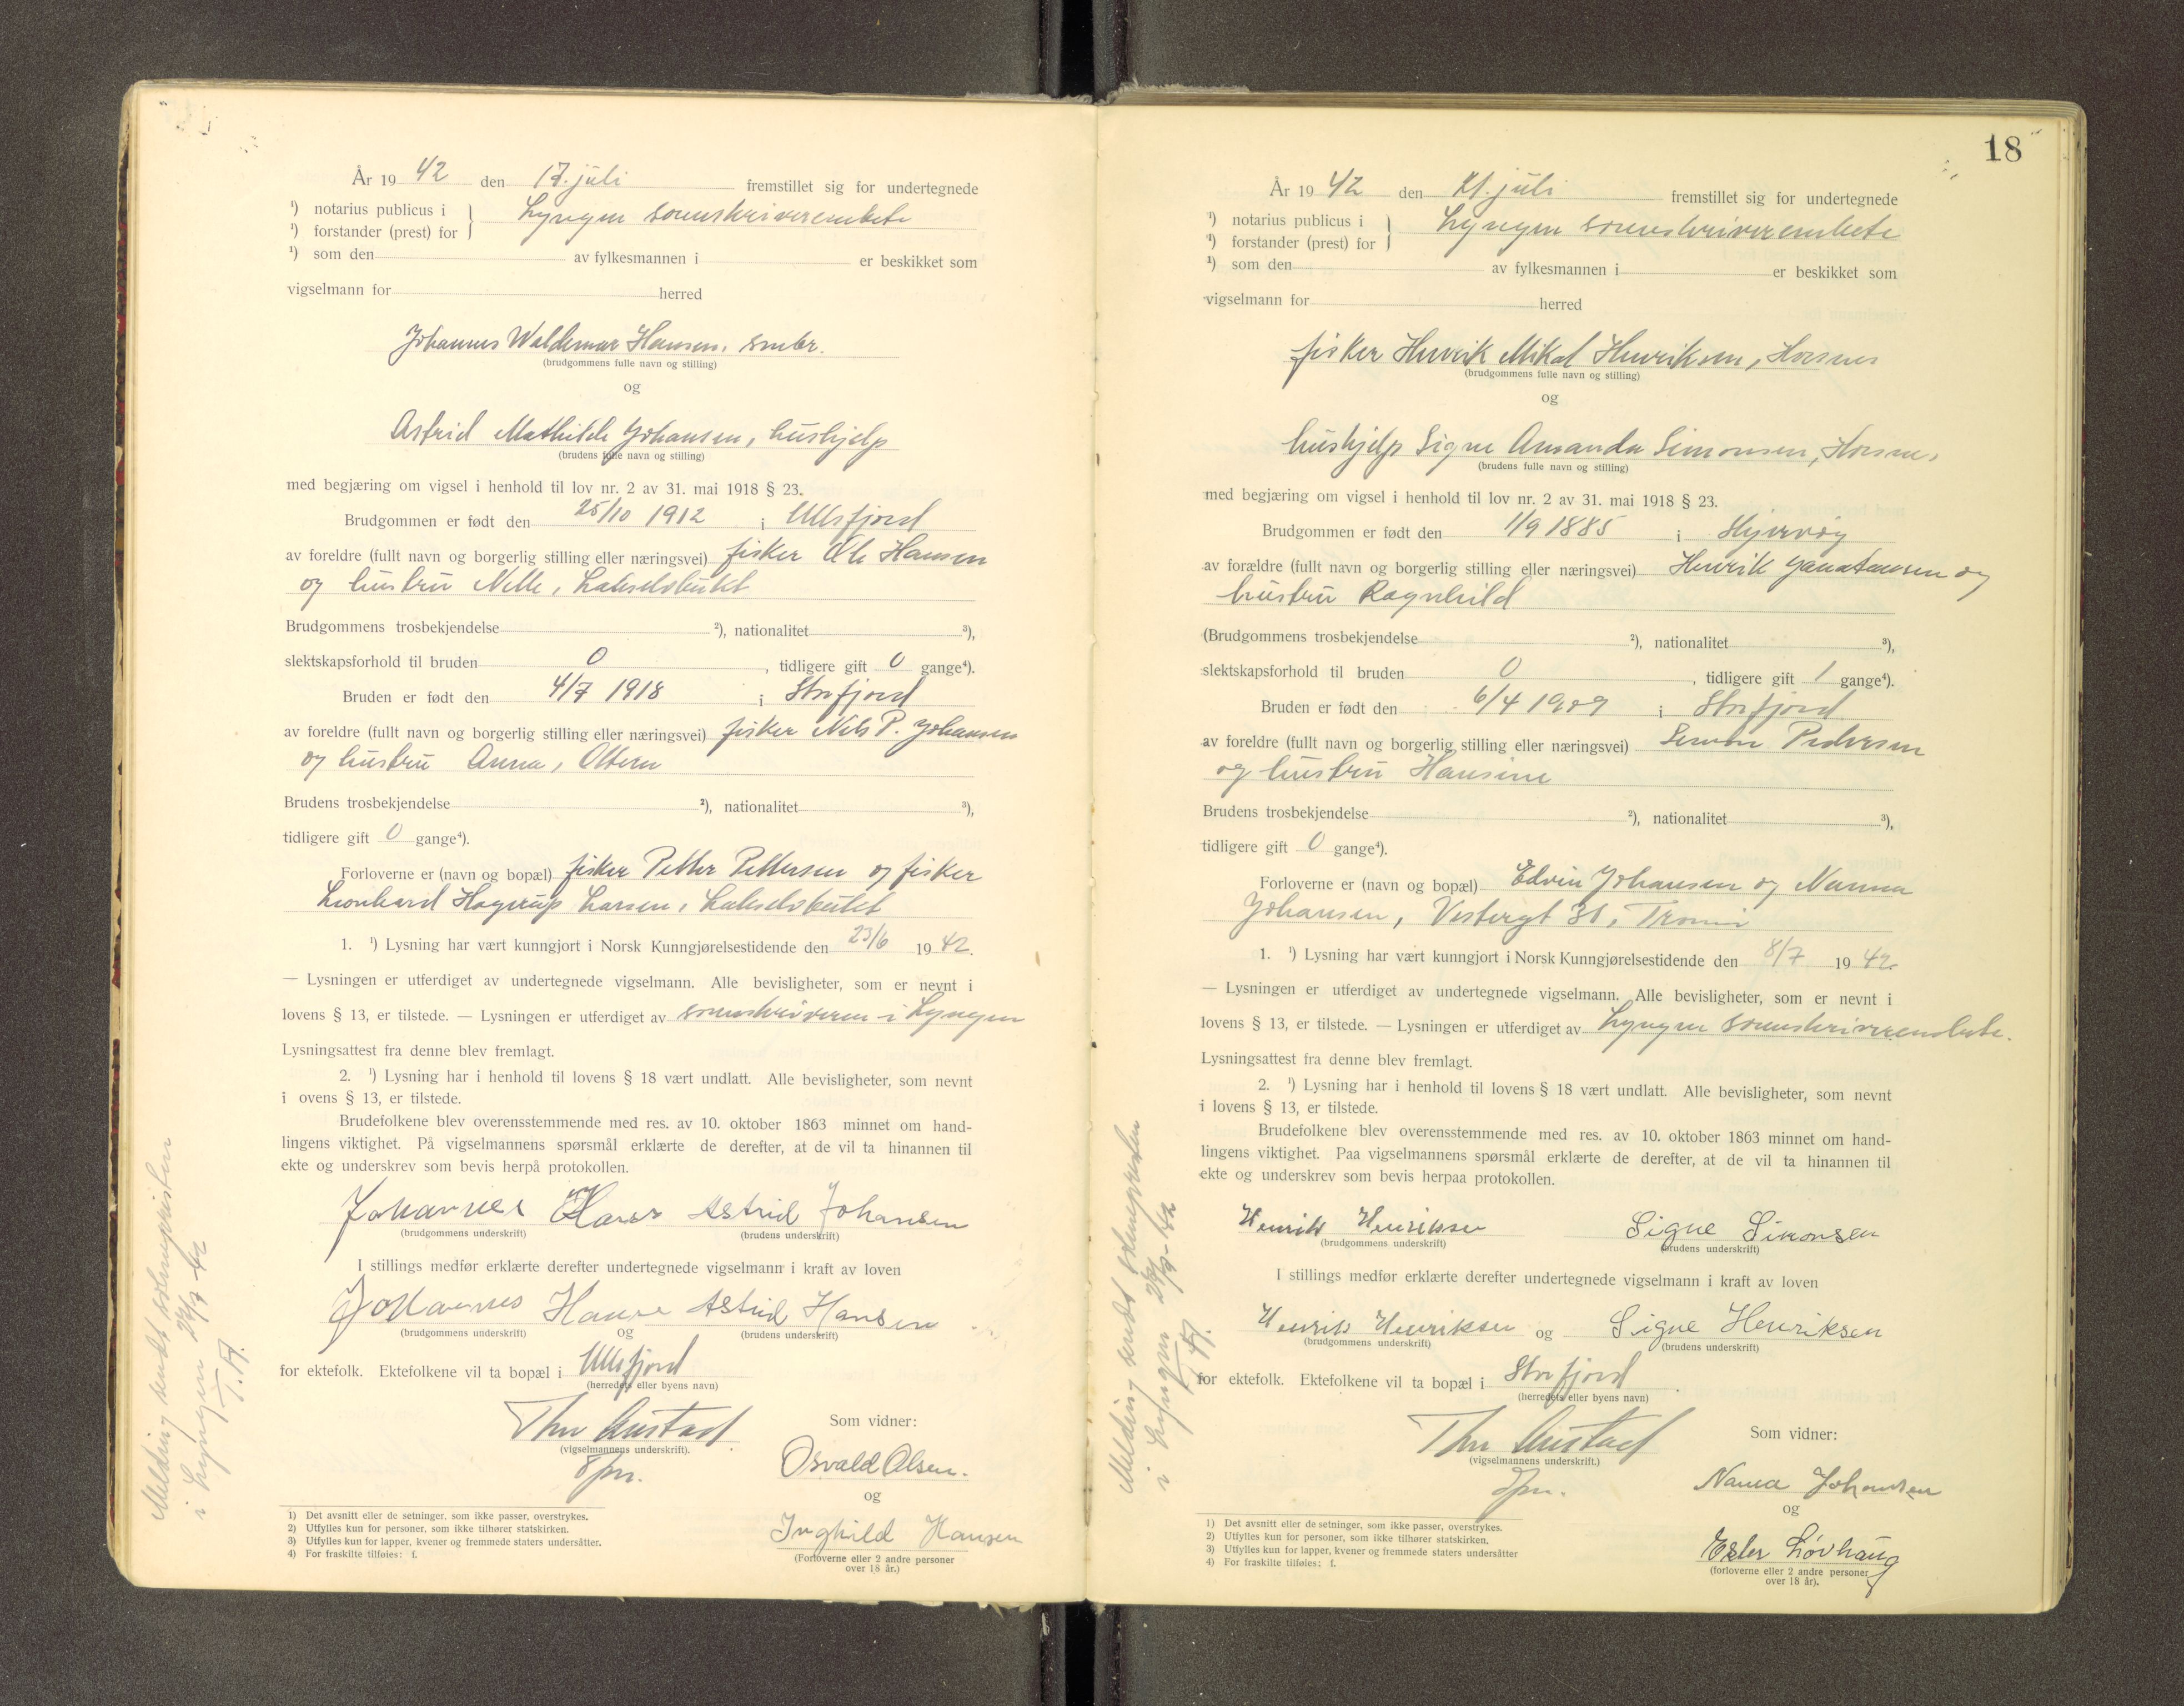 År 19 42 den 17. juli fremstillet sig for undertegnede
¹) notarius publicus i } Lyngen sorenskriverembete
¹) forstander (prest) for
¹) som den av fylkesmannen i er beskikket som
vigselmann for herred
Johannes Waldemar Hansen, småbr.
(brudgommens fulle navn og stilling)
og
Astrid Mathilde Johansen, hushjelp
(brudens fulle navn og stilling)
med begjæring om vigsel i henhold til lov nr. 2 av 31. mai 1918 § 23.
Brudgommen er født den 25/10 1912 i Ullsfjord
av foreldre (fullt navn og borgerlig stilling eller næringsvei) fisker Ole Hansen
og hustru Nelle, Lakselvbukt
Brudgommens trosbekjendelse ²), nationalitet ³),
slektskapsforhold til bruden 0, tidligere gift 0 gange⁴).
Bruden er født den 4/7 1918 i Storfjord
av foreldre (fullt navn og borgerlig stilling eller næringsvei) fisker Nils P. Johansen
og hustru Anna, Oteren
Brudens trosbekjendelse ²), nationalitet ³),
tidligere gift 0 gange⁴).
Forloverne er (navn og bopæl) fisker Petter Pettersen og fisker
Leonhard Hagerup Larsen, Lakselvbukt
1. ¹) Lysning har vært kunngjort i Norsk Kunngjørelsestidende den 23/6 19 42.
— Lysningen er utferdiget av undertegnede vigselmann. Alle bevisligheter, som er nevnt i
lovens § 13, er tilstede. — Lysningen er utferdiget av sorenskriveren i Lyngen
Lysningsattest fra denne blev fremlagt.
2. ¹) Lysning har i henhold til lovens § 18 vært undlatt. Alle bevisligheter, som nevnt
i ovens § 13, er tilstede.
Brudefolkene blev overensstemmende med res. av 10. oktober 1863 minnet om hand-
lingens viktighet. På vigselmannens spørsmål erklærte de derefter, at de vil ta hinannen til
ekte og underskrev som bevis herpå protokollen.
Johannes Hansen Astrid Johansen
(brudgommens underskrift) (brudens underskrift)
I stillings medfør erklærte derefter undertegnede vigselmann i kraft av loven
Johannes Hansen og Astrid Hansen
(brudgommens underskrift) (brudens underskrift)
for ektefolk. Ektefolkene vil ta bopæl i Ullsfjord
(herredets eller byens navn)
Thv Austad
(vigselmannens underskrift).
Som vidner:
Osvald Olsen.
og
Inghild Hansen
(Forloverne eller 2 andre personer
over 18 år.)
1) Det avsnitt eller de setninger, som ikke passer, overstrykes.
2) Utfylles kun for personer, som ikke tilhører statskirken.
3) Utfylles kun for lapper, kvener og fremmede staters undersåtter.
4) For fraskilte tilføies: f.
Melding sendt soknepresten
i Lyngen 24/7-42
18
År 19 42 den 21. juli fremstillet sig for undertegnede
¹) notarius publicus i } Lyngen sorenskriverembete
¹) forstander (prest) for
¹) som den av fylkesmannen i er beskikket som
vigselmann for herred
fisker Henrik Mikal Henriksen, Horsnes
(brudgommens fulle navn og stilling)
og
hushjelp Signe Amanda Simonsen, Horsnes
(brudens fulle navn og stilling)
med begjæring om vigsel i henhold til lov nr. 2 av 31. mai 1918 § 23.
Brudgommen er født den 1/9 1885 i Skjervøy
av forældre (fullt navn og borgerlig stilling eller næringsvei) Henrik Janatansen og
hustru Ragnhild
(Brudgommens trosbekjendelse ²), nationalitet ³),
slektskapsforhold til bruden 0, tidligere gift 1 gange⁴).
Bruden er født den 6/4 1909 i Storfjord
av foreldre (fullt navn og borgerlig stilling eller næringsvei) Simon Pedersen
og hustru Hansine
Brudens trosbekjendelse ²), nationalitet ³),
tidligere gift 0 gange⁴).
Forloverne er (navn og bopæl) Edvin Johansen og Nanna
Johansen, Vestergt 31, Tromsø
1. ¹) Lysning har vært kunngjort i Norsk Kunngjørelsestidende den 8/7 19 42.
— Lysningen er utferdiget av undertegnede vigselmann. Alle bevisligheter, som er nevnt i
lovens § 13, er tilstede. — Lysningen er utferdiget av Lyngen sorenskriverembete.
Lysningsattest fra denne blev fremlagt.
2. ¹) Lysning har i henhold til lovens § 18 vært undlatt. Alle bevisligheter, som nevnt
i lovens § 13, er tilstede.
Brudefolkene blev overensstemmende med res. av 10. oktober 1863 minnet om hand-
lingens viktighet. Paa vigselmannens spørsmål erklærte de derefter, at de vil ta hinannen til
ekte og underskrev som bevis herpaa protokollen.
Henrik Henriksen Signe Simonsen
(brudgommens underskrift) (brudens underskrift)
I stillings medfør erklærte derefter undertegnede vigselmann i kraft av loven
Henrik Henriksen og Signe Henriksen
(brudgommens underskrift) (brudens underskrift)
for ektefolk. Ektefolkene vil ta bopæl i Storfjord
(herredets eller byens navn)
Thv Austad
(vigselmannens underskrift.)
Som vidner:
Nanna Johansen
og
Ester Løvhaug
(forloverne eller 2 andre personer
over 18 år).
1) Det avsnitt eller de setninger, som ikke passer, overstrykes.
2) Utfylles kun for personer, som ikke tilhører statskirken.
3) Utfylles kun for lapper, kvener og fremmede staters undersåtter
4) For fraskilte tilføies: f.
Melding sendt soknepresten
i Lyngen